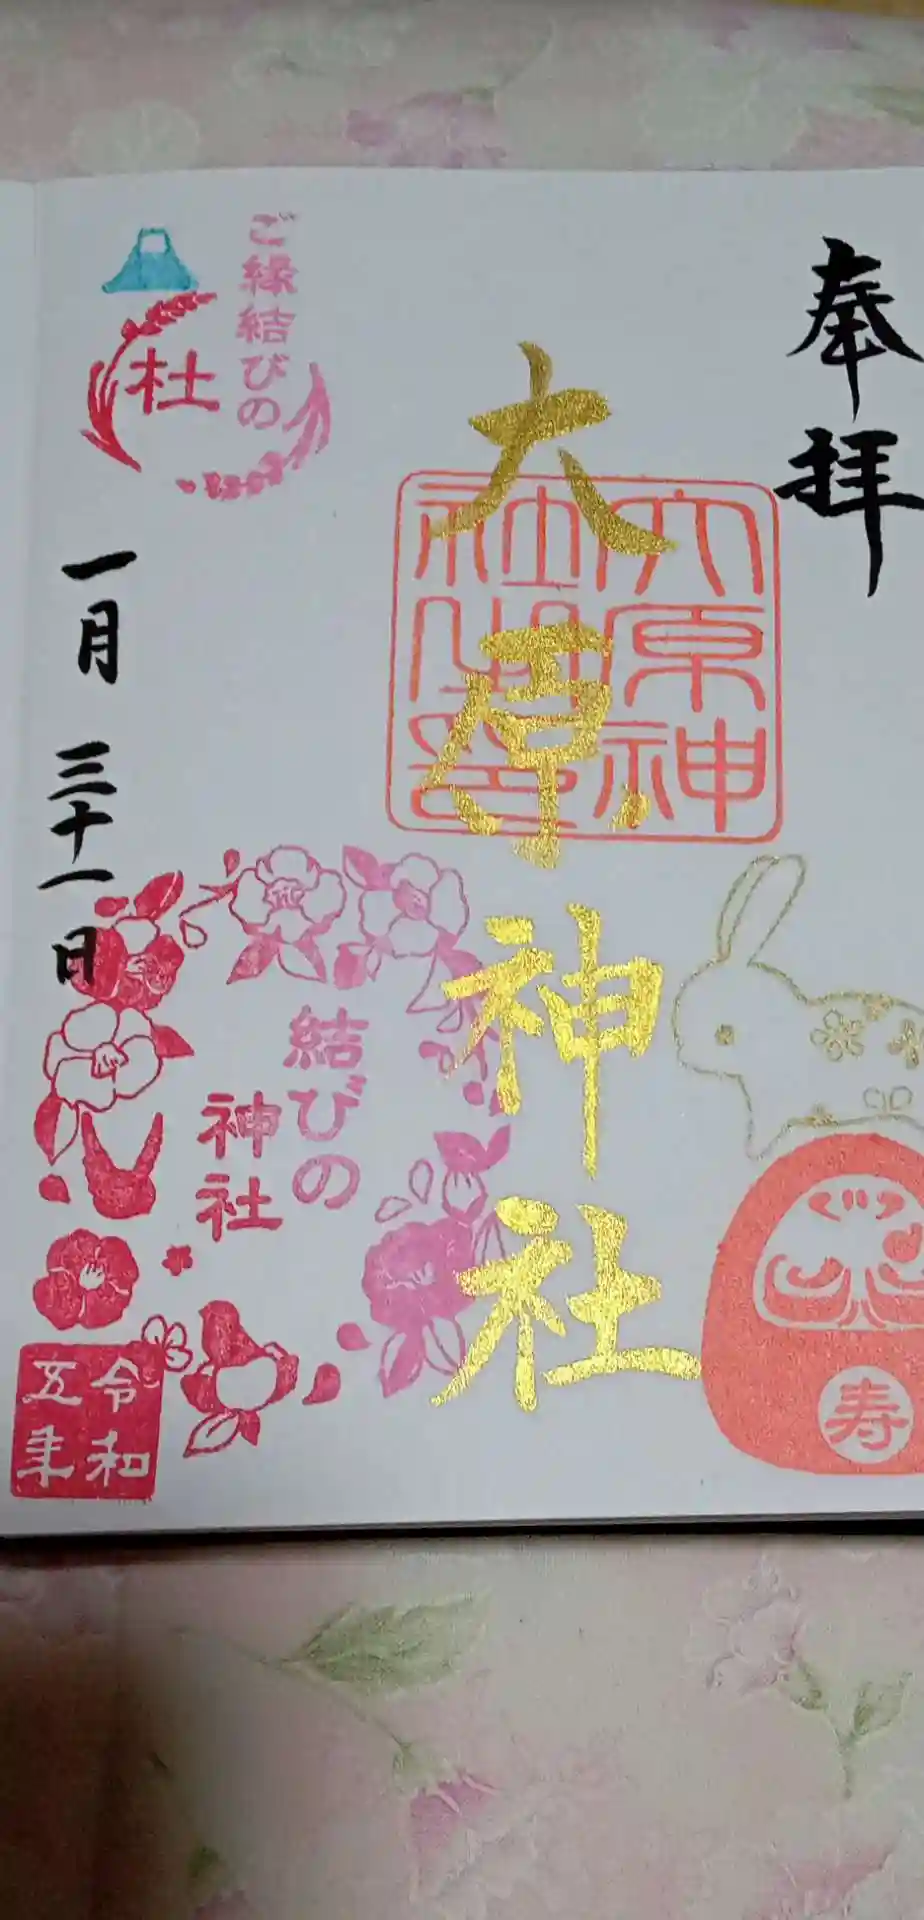 奉拝
大原神社
大原神
社出雲
寿
ご縁結びの
杜
一月 三十一日
結びの
神社
令和
五年